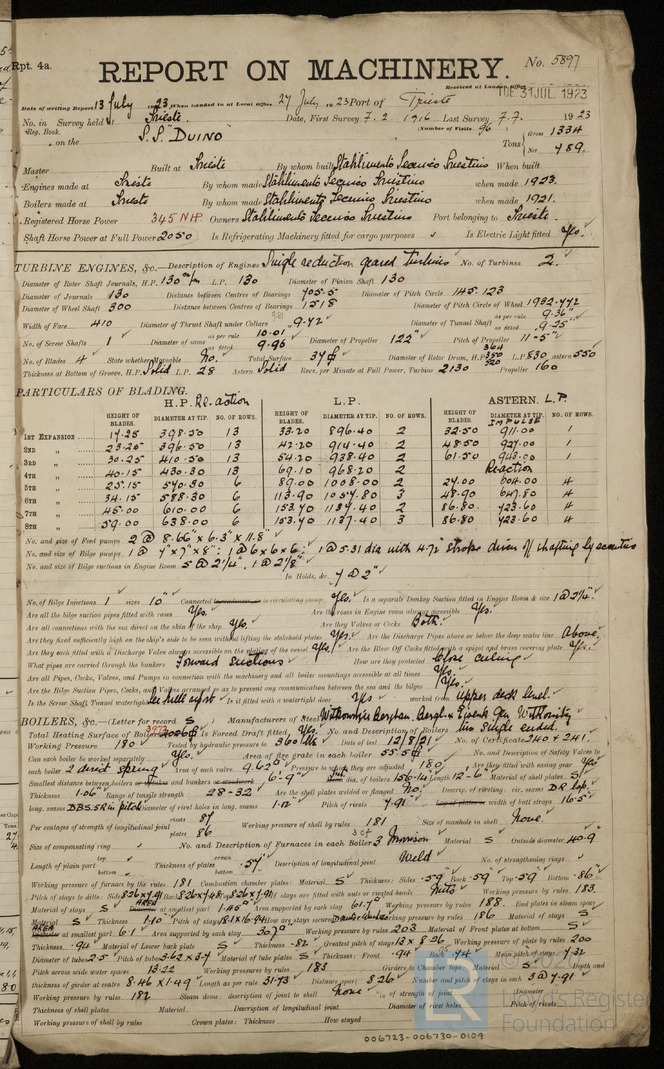 Rpt. 4a.
REPORT ON MACHINERY.
No. 5897
Received at London Office TUE 31 JUL. 1923
Date of writing Report 13 July 1923 When handed in at Local Office 27 July 1923 Port of Trieste
No. in Survey held at Trieste Date, First Survey 7.2.1916 Last Survey 7.7. 1923
Reg. Book.
(Number of Visits 96)
on the S.S. "DUINO"
Tons Gross 1334
Net 789
Master Built at Trieste By whom built Stabilimento Tecnico Triestino When built
Engines made at Trieste By whom made Stabilimento Tecnico Triestino when made 1923.
Boilers made at Trieste By whom made Stabilimento Tecnico Triestino when made 1921.
Registered Horse Power 345 NHP Owners Stabilimento Tecnico Triestino Port belonging to Trieste.
Shaft Horse Power at Full Power 2050 Is Refrigerating Machinery fitted for cargo purposes Is Electric Light fitted Yes.
TURBINE ENGINES, &c.—Description of Engines Single reduction geared turbines No. of Turbines 2.
Diameter of Rotor Shaft Journals, H.P. 130 m/m L.P. 130 Diameter of Pinion Shaft 130
Diameter of Journals 130 Distance between Centres of Bearings 705.5 Diameter of Pitch Circle 145.123
Diameter of Wheel Shaft 300 Distance between Centres of Bearings 1518 Diameter of Pitch Circle of Wheel 1982.772
Width of Face 410 Diameter of Thrust Shaft under Collars 9.72" Diameter of Tunnel Shaft as per rule 9.36" as fitted 9.25"
No. of Screw Shafts 1 Diameter of same as per rule 10.01 as fitted 9.96 Diameter of Propeller 122" Pitch of Propeller 11'-5"
No. of Blades 4 State whether Moveable No. Total Surface 37 Diameter of Rotor Drum, H.P. L.P. 830 Astern 550
Thickness at Bottom of Groove, H.P. Solid L.P. 28 Astern Solid Revs. per Minute at Full Power, Turbine 2130 Propeller 160
PARTICULARS OF BLADING.
H.P. Re-action L.P. ASTERN. L.P.
HEIGHT OF BLADES. DIAMETER AT TIP. NO. OF ROWS. HEIGHT OF BLADES. DIAMETER AT TIP. NO. OF ROWS. HEIGHT OF BLADES. DIAMETER AT TIP. NO. OF ROWS.
IMPULSE
1ST EXPANSION 17.25 398.50 13 33.20 896.40 2 32.50 911.00 1
2ND " 23.25 396.50 13 42.20 914.40 2 48.50 927.00 1
3RD " 30.25 410.50 13 54.20 938.40 2 61.50 943.00 1
4TH " 40.15 430.30 13 69.10 968.20 2 Reaction
5TH " 25.15 570.30 6 89.00 1008.00 2 27.00 604.00 4
6TH " 34.15 588.30 6 113.90 1057.80 3 48.90 647.80 4
7TH " 45.00 610.00 6 153.70 1137.40 2 86.80 723.60 4
8TH " 59.00 638.00 6 153.70 1137.40 3 86.80 723.60 4
No. and size of Feed pumps 2 @ 8.66" x 6.3" x 11.8"
No. and size of Bilge pumps 1 @ 7" x 7" x 8" : 1 @ 6 x 6 x 6 : 1 @ 5.31 dia with 4.72" stroke driven off shafting by eccentrics
No. and size of Bilge suctions in Engine Room 5 @ 2¼", 1 @ 2⅞"
In Holds, &c. 7 @ 2"
No. of Bilge Injections 1 sizes 10" Connected to circulating pump Yes. Is a separate Donkey Suction fitted in Engine Room & size
Are all the bilge suction pipes fitted with roses Yes. Are the roses in Engine room always accessible Yes.
Are all connections with the sea direct on the skin of the ship Yes. Are they Valves or Cocks Both.
Are they fixed sufficiently high on the ship's side to be seen without lifting the stokehold plates Yes. Are the Discharge Pipes above or below the deep water line Above.
Are they each fitted with a Discharge Valve always accessible on the plating of the vessel Yes. Are the Blow Off Cocks fitted with a spigot and brass covering plate Yes.
What pipes are carried through the bunkers Forward suctions How are they protected Close ceiling.
Are all Pipes, Cocks, Valves, and Pumps in connection with the machinery and all boiler mountings accessible at all times Yes.
Are the Bilge Suction Pipes, Cocks, and Valves arranged so as to prevent any communication between the sea and the bilges Yes.
Is the Screw Shaft Tunnel watertight Is it fitted with a watertight door Yes worked from upper deck level.
BOILERS, &c.—(Letter for record S) Manufacturers of Steel Witkowitz Bergbau
Total Heating Surface of Boilers Is Forced Draft fitted Yes. No. and Description of Boilers Two Single ended.
Working Pressure 180 Tested by hydraulic pressure to 360 lbs Date of test 12/8/21 No. of Certificate 240 & 241
Can each boiler be worked separately Yes. Area of fire grate in each boiler 55.5 No. and Description of Safety Valves to
each boiler 2 direct spring Area of each valve 9.62 Pressure to which they are adjusted 180 Are they fitted with easing gear Yes
Smallest distance between boilers or uptakes and bunkers or woodwork 6'-9" dia. of boilers Length 12'-6" Material of shell plates S
Thickness 1.06" Range of tensile strength 28-32 Are the shell plates welded or flanged No. Descrip. of riveting: cir. seams D R lap.
long. seams Diameter of rivet holes in long. seams 1.12 Pitch of rivets 7.91 width of butt straps 16.5"
Per centages of strength of longitudinal joint rivets 87 plates 86 Working pressure of shell by rules 181 Size of manhole in shell None.
Size of compensating ring No. and Description of Furnaces in each Boiler 3 Morrison Material S Outside diameter 40.9"
Length of plain part top bottom Thickness of plates crown bottom .57 Description of longitudinal joint Weld No. of strengthening rings
Working pressure of furnace by the rules 181 Combustion chamber plates: Material S Thickness: Sides .59 Back .59 Top .59 Bottom .86
Pitch of stays to ditto: Sides Back Top If stays are fitted with nuts or riveted heads Nuts Working pressure by rules 183.
Material of stays S AREA at smallest part 1.45 Area supported by each stay 61.7 Working pressure by rules 188. End plates in steam space:
Material S Thickness 1.10 Pitch of stays How are stays secured Working pressure by rules 186 Material of stays S
AREA at smallest part 6.1 Area supported by each stay 307 Working pressure by rules 203 Material of Front plates at bottom S
Thickness .94 Material of Lower back plate S Thickness .82 Greatest pitch of stays 13 x 8.26 Working pressure of plate by rules 200
Diameter of tubes 2.5 Pitch of tubes 3.62 x 3.7 Material of tube plates S Thickness: Front .94 Back .74 Mean pitch of stays 7.32
Pitch across wide water spaces 13.22 Working pressures by rules 183 Girders to Chamber tops: Material S Depth and
thickness of girder at centre 8.46 x 1.49 Length as per rule 31.73 Distance apart 8.26 Number and pitch of stays in each 3 @ 7.91
Working pressure by rules 182 Steam dome: description of joint to shell None % of strength of joint Diameter
Thickness of shell plates Material Description of longitudinal joint Diameter of rivet holes Pitch of rivets
Working pressure of shell by rules Crown plates: Thickness How stayed
Lloyd's Register
Foundation
006723-006730-0109